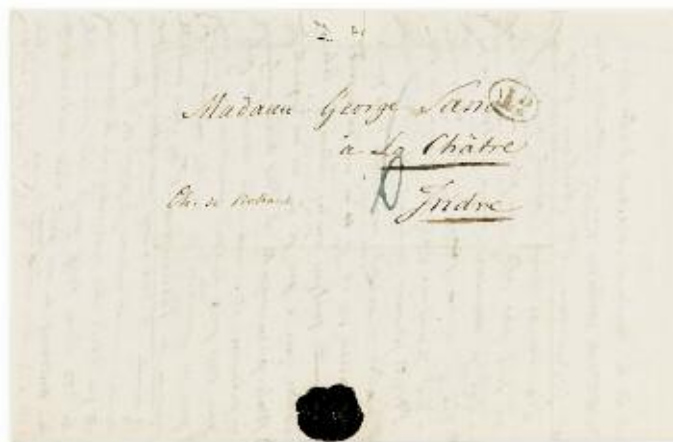 Madame George Sand
à La Châtre
Indre
Ch. de